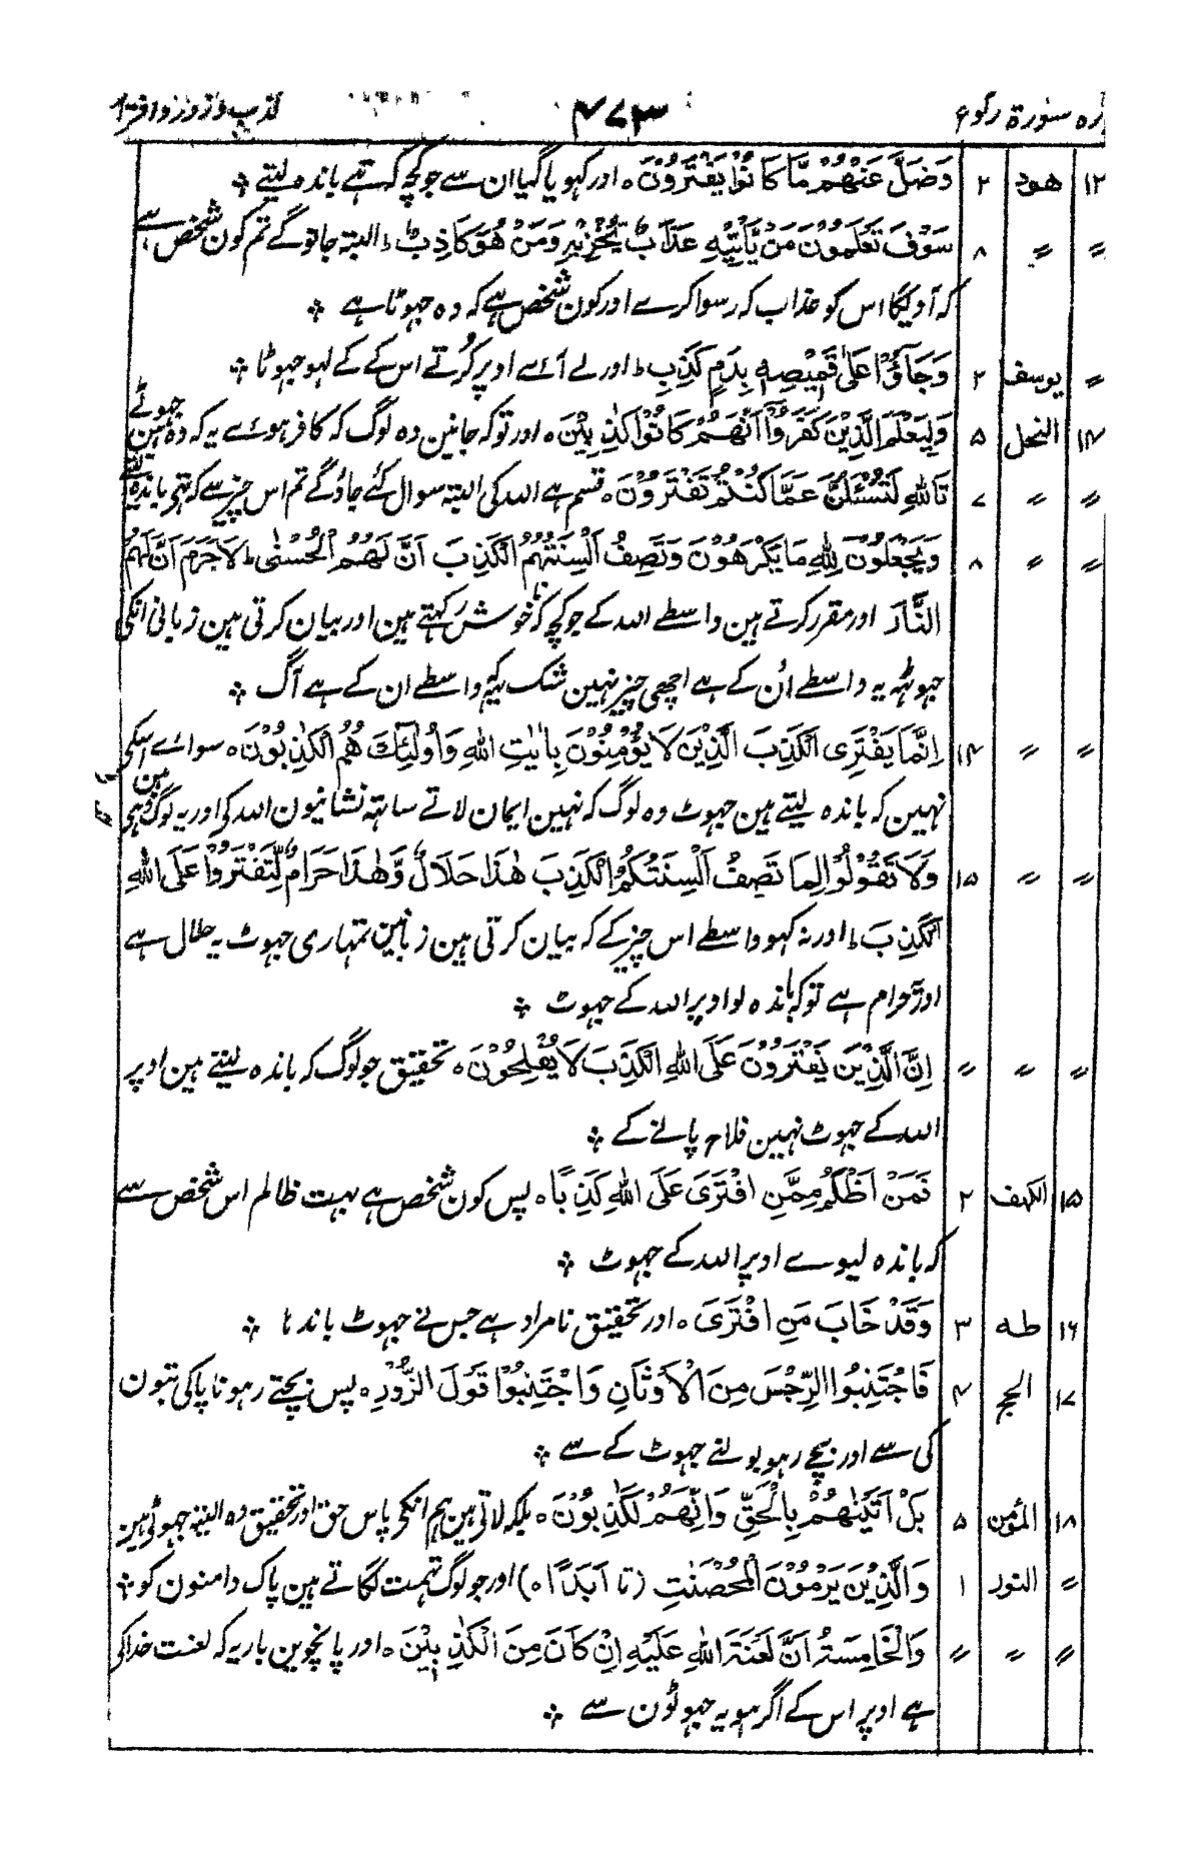 پارہ سورۃ رکوع ۴۷۳ کذب و زور و افترا
۱۲ ھود ۲ وَضَلَّ عَنْهُمْ مَّا كَانُوْا يَفْتَرُوْنَ ٥ اور کہویا گیا ان سے جو کچہ کہ تہے باندہ لیتے ؞
〃 〃 ۸ سَوْفَ تَعْلَمُوْنَ مَنْ يَّأْتِيْهِ عَذَابٌ يُّخْزِيْهِ وَمَنْ هُوَ كَاذِبٌ ط البتہ جانو گے تم کون شخص ہے
کہ آویگا اس کو عذاب کہ رسوا کرے اور کون شخص ہے کہ وہ جہوٹا ہے ؞
〃 یوسف ۲ وَجَآؤُا عَلٰى قَمِيْصِهٖ بِدَمٍ كَذِبٍ ط اور لے آئے اوپر کرتے اس کے کے لہو جہوٹا ؞
۱۴ النحل ۵ وَلِيَعْلَمَ الَّذِيْنَ كَفَرُوْٓا اَنَّهُمْ كَانُوْا كٰذِبِيْنَ ٥ اور تو کہ جانین وہ لوگ کہ کافر ہوئے یہ کہ وہ تہین جہوٹے
〃 〃 ۷ تَاللّٰهِ لَتُسْئَلُنَّ عَمَّا كُنْتُمْ تَفْتَرُوْنَ ٥ قسم ہے اللہ کی البتہ سوال کئے جاؤ گے تم اس چیز سے کہ تہے باندہ لیتے
〃 〃 ۸ وَيَجْعَلُوْنَ لِلّٰهِ مَا يَكْرَهُوْنَ وَتَصِفُ اَلْسِنَتُهُمُ الْكَذِبَ اَنَّ لَهُمُ الْحُسْنٰى ط لَا جَرَمَ اَنَّ لَهُمُ
النَّارَ اور مقرر کرتے ہین واسطے اللہ کے جو کچہ کہ ناخوش رکہتے ہین اور بیان کرتی ہین زبانی انکی
جہوٹہہ یہ واسطے اُن کے ہے اچھی چیز نہین شک یہ کہ واسطے ان کے ہے آگ ؞
〃 〃 ۱۴ اِنَّمَا يَفْتَرِى الْكَذِبَ الَّذِيْنَ لَا يُؤْمِنُوْنَ بِاٰيٰتِ اللّٰهِ وَاُولٰٓئِكَ هُمُ الْكٰذِبُوْنَ ٥ سوائے اسکی
نہین کہ باندہ لیتے ہین جہوٹ وہ لوگ کہ نہین ایمان لاتے ساتہہ نشانیون اللہ کی اور یہ لوگ وہی ہین
〃 〃 ۱۵ وَلَا تَقُوْلُوْا لِمَا تَصِفُ اَلْسِنَتُكُمُ الْكَذِبَ هٰذَا حَلَالٌ وَّهٰذَا حَرَامٌ لِّتَفْتَرُوْا عَلَى اللّٰهِ
الْكَذِبَ ط اور نہ کہو واسطے اس چیز کے کہ بیان کرتی ہین زبانین تمہاری جہوٹ یہ حلال ہے
اور یہ حرام ہے تو کہ باندہ لو اوپر اللہ کے جہوٹ ؞
〃 〃 〃 اِنَّ الَّذِيْنَ يَفْتَرُوْنَ عَلَى اللّٰهِ الْكَذِبَ لَا يُفْلِحُوْنَ ٥ تحقیق جو لوگ کہ باندہ لیتے ہین اوپر
اللہ کے جہوٹ نہین فلاح پانے کے ؞
۱۵ الکہف ۲ فَمَنْ اَظْلَمُ مِمَّنِ افْتَرٰى عَلَى اللّٰهِ كَذِبًا ٥ پس کون شخص ہے بہت ظالم اس شخص سے
کہ باندہ لیوے اوپر اللہ کے جہوٹ ؞
۱۶ طہ ۳ وَقَدْ خَابَ مَنِ افْتَرٰى ٥ اور تحقیق نامراد ہے جس نے جہوٹ باندہا ؞
۱۷ الحج ۴ فَاجْتَنِبُوا الرِّجْسَ مِنَ الْاَوْثَانِ وَاجْتَنِبُوْا قَوْلَ الزُّوْرِ ٥ پس بچتے رہو ناپاکی بتون
کی سے اور بچے رہو بولنے جہوٹ کے سے ؞
۱۸ المؤمن ۵ بَلْ اَتَيْنٰهُمْ بِالْحَقِّ وَاِنَّهُمْ لَكٰذِبُوْنَ ٥ بلکہ لائی ہین ہم انکی پاس حق اور تحقیق وہ البتہ جہوٹی ہین
〃 النور ۱ وَالَّذِيْنَ يَرْمُوْنَ الْمُحْصَنٰتِ (تا اَبَدًا ٥) اور جو لوگ تہمت لگاتے ہین پاک دامنون کو ؞
〃 〃 〃 وَالْخَامِسَةُ اَنَّ لَعْنَتَ اللّٰهِ عَلَيْهِ اِنْ كَانَ مِنَ الْكٰذِبِيْنَ ٥ اور پانچوین بار یہ کہ لعنت خدا کی
ہے اوپر اس کے اگر ہو یہ جہوٹون سے ؞